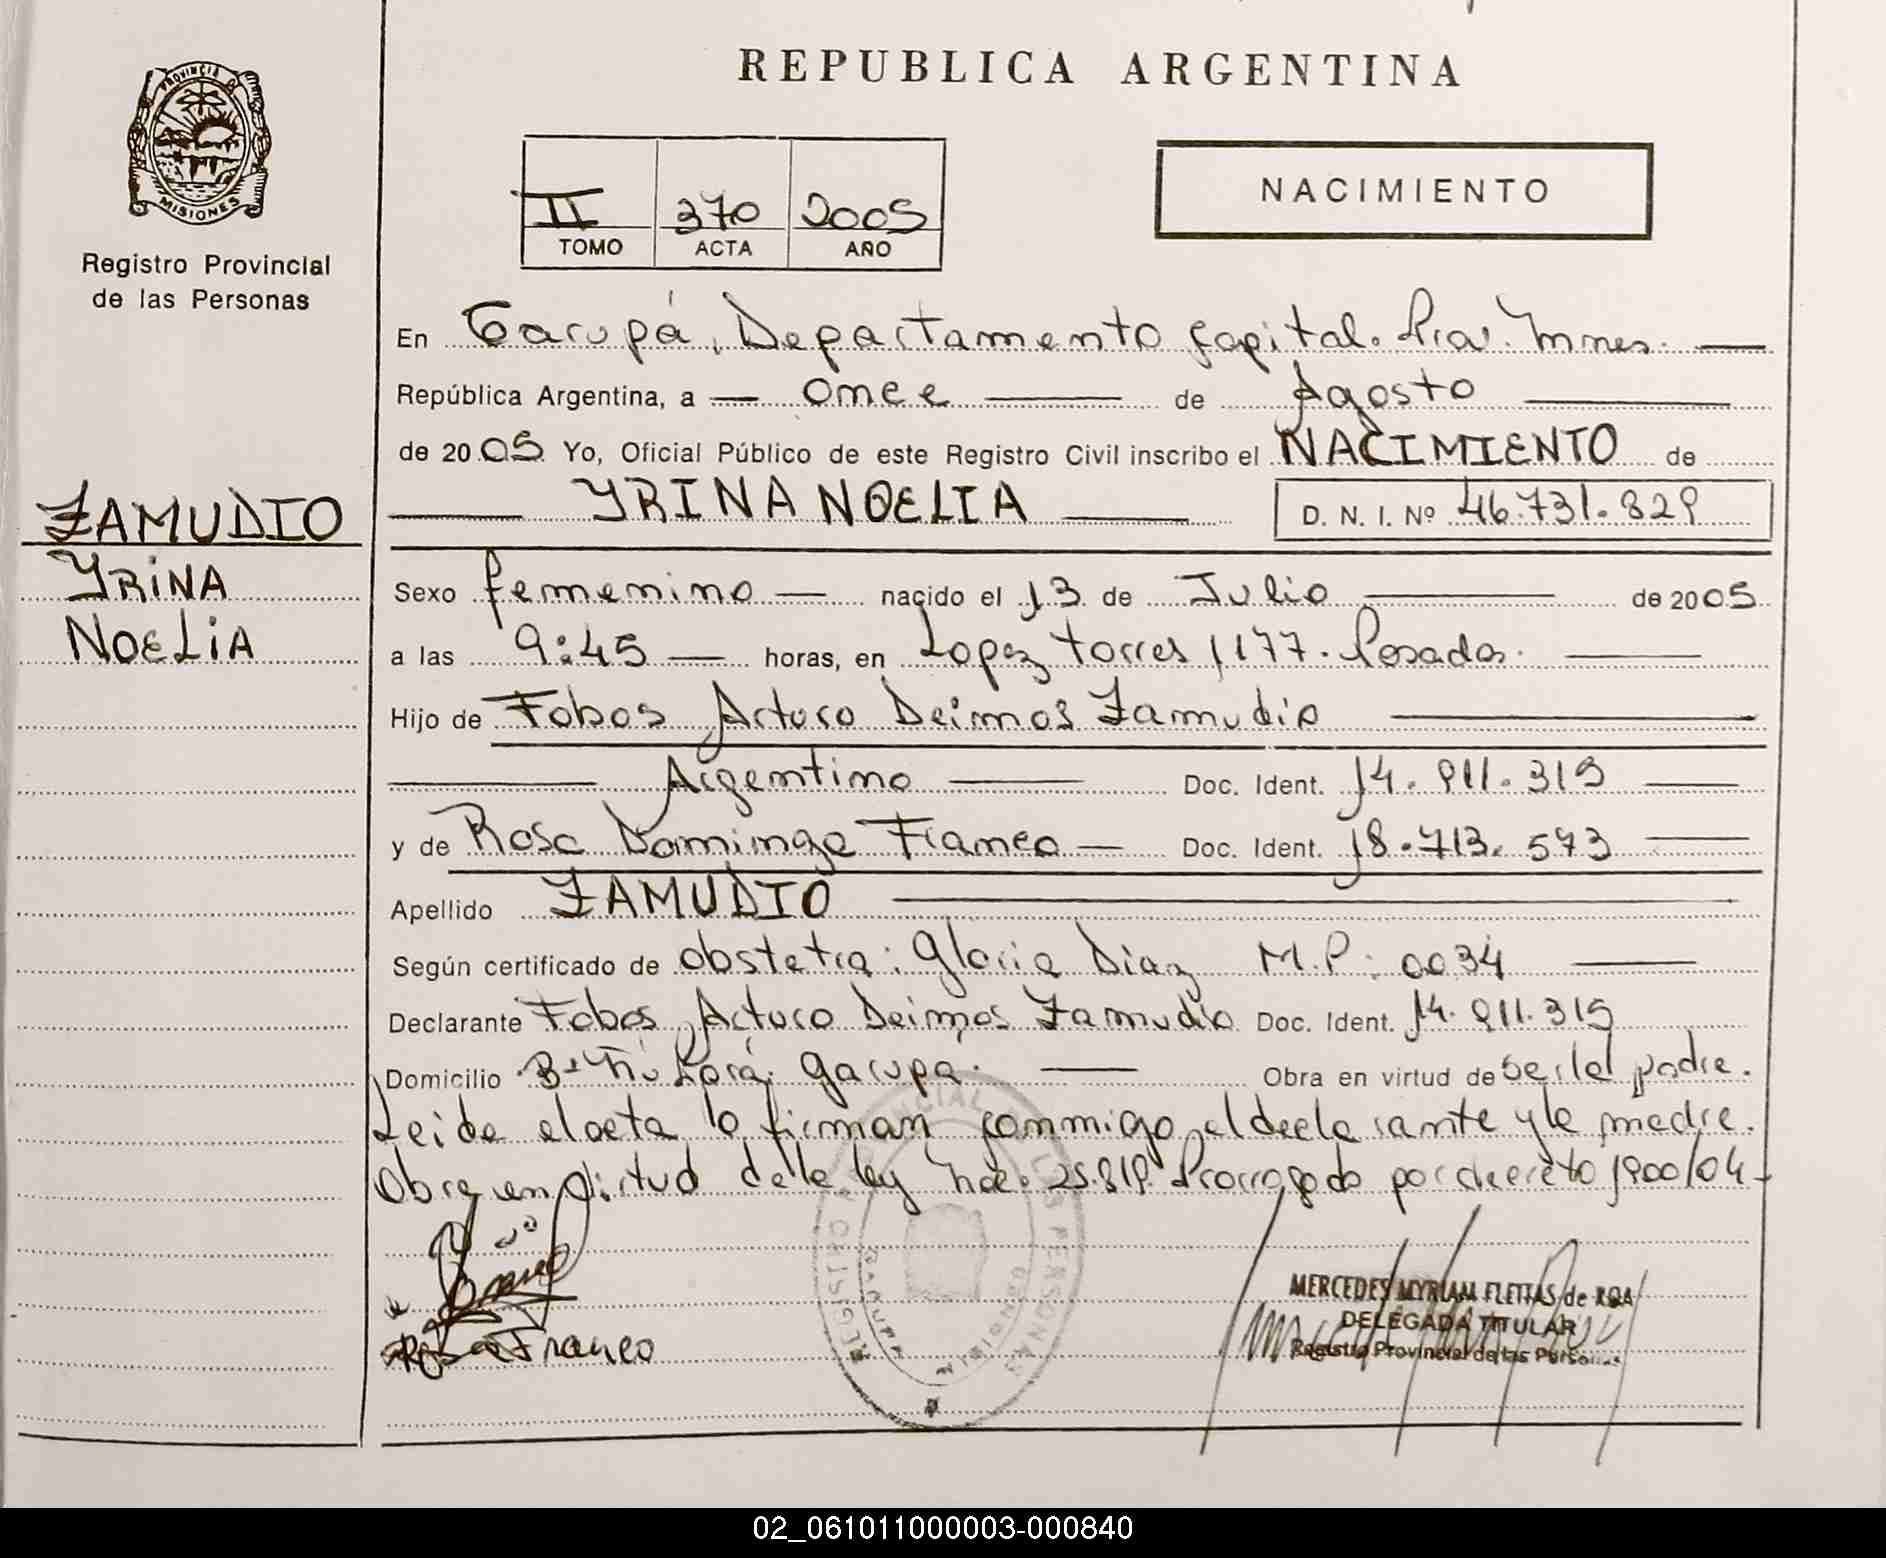 REPUBLICA ARGENTINA
PROVINCIA DE MISIONES
Registro Provincial
de las Personas
II 370 2005
TOMO ACTA AÑO
NACIMIENTO
ZAMUDIO
YRINA
NOELIA
En Garupá, Departamento Capital. Prov. Mnes.
República Argentina, a once de Agosto
de 2005 Yo, Oficial Público de este Registro Civil inscribo el NACIMIENTO de
YRINA NOELIA D. N. I. Nº 46.731.829
Sexo femenino nacido el 13 de Julio de 2005
a las 9:45 horas, en Lopez Torres 1177. Posadas.
Hijo de Fobos Arturo Deimos Zamudio
Argentino Doc. Ident. 14.911.319
y de Rosa Dominga Franco Doc. Ident. 18.713.573
Apellido ZAMUDIO
Según certificado de obstetra: Gloria Diaz M.P: 0034
Declarante Fobos Arturo Deimos Zamudio Doc. Ident. 14.911.319
Domicilio Bº Ñu Porá. Garupá. Obra en virtud de ser el padre.
Leida el acta la firman conmigo el declarante y la madre.
Obra en virtud de la ley nac. 25.819. Prorrogado por decreto 1900/04
Rosa Franco
MERCEDES MYRIAM FLEITAS de ROA
DELEGADA TITULAR
Registro Provincial de las Personas
02_061011000003-000840